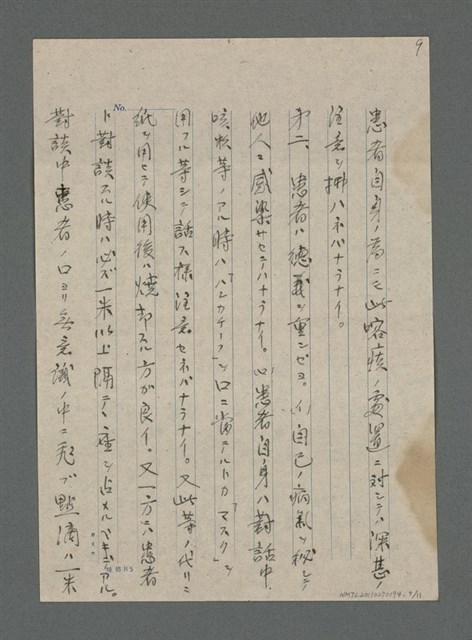 9
患者自身ノ為ニモ此喀痰ノ處置ニ対シテハ深甚ノ
注意ヲ拂ハネバナラナイ。
第二、患者ハ徳義ヲ重ンゼヨ。(イ)自己ノ病氣ヲ秘シテ
他人ニ感染サセテハナラナイ。(ロ)患者自身ハ對話中
咳嗽等ノアル時ハ「ハンカチーフ」ヲ口ニ當テルトカ「マスク」ヲ
用フル等シテ話ス様注意セネバナラナイ。又此等ノ代リニ
紙ヲ用ヒテ使用後ハ燒却スル方が良イ。又一方ニハ患者
ト對談スル時ハ必ズ一米以上隔テヽ座ヲ占メルベキデアル。
對談中患者ノ口ヨリ無意識ノ中ニ飛ブ點滴ハ一米
No.
NMTL20110270194-9/11